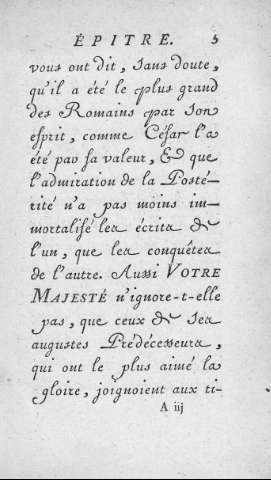 ÉPITRE. 5
vous ont dit, sans doute,
qu'il a été le plus grand
des Romains par son
esprit, comme César l'a
été par sa valeur, & que
l'admiration de la Posté-
rité n'a pas moins im-
mortalisé les écrits de
l'un, que les conquêtes
de l'autre. Aussi VOTRE
MAJESTÉ n'ignore-t-elle
pas, que ceux de ses
augustes Prédécesseurs,
qui ont le plus aimé la
gloire, joignoient aux ti-
A iij